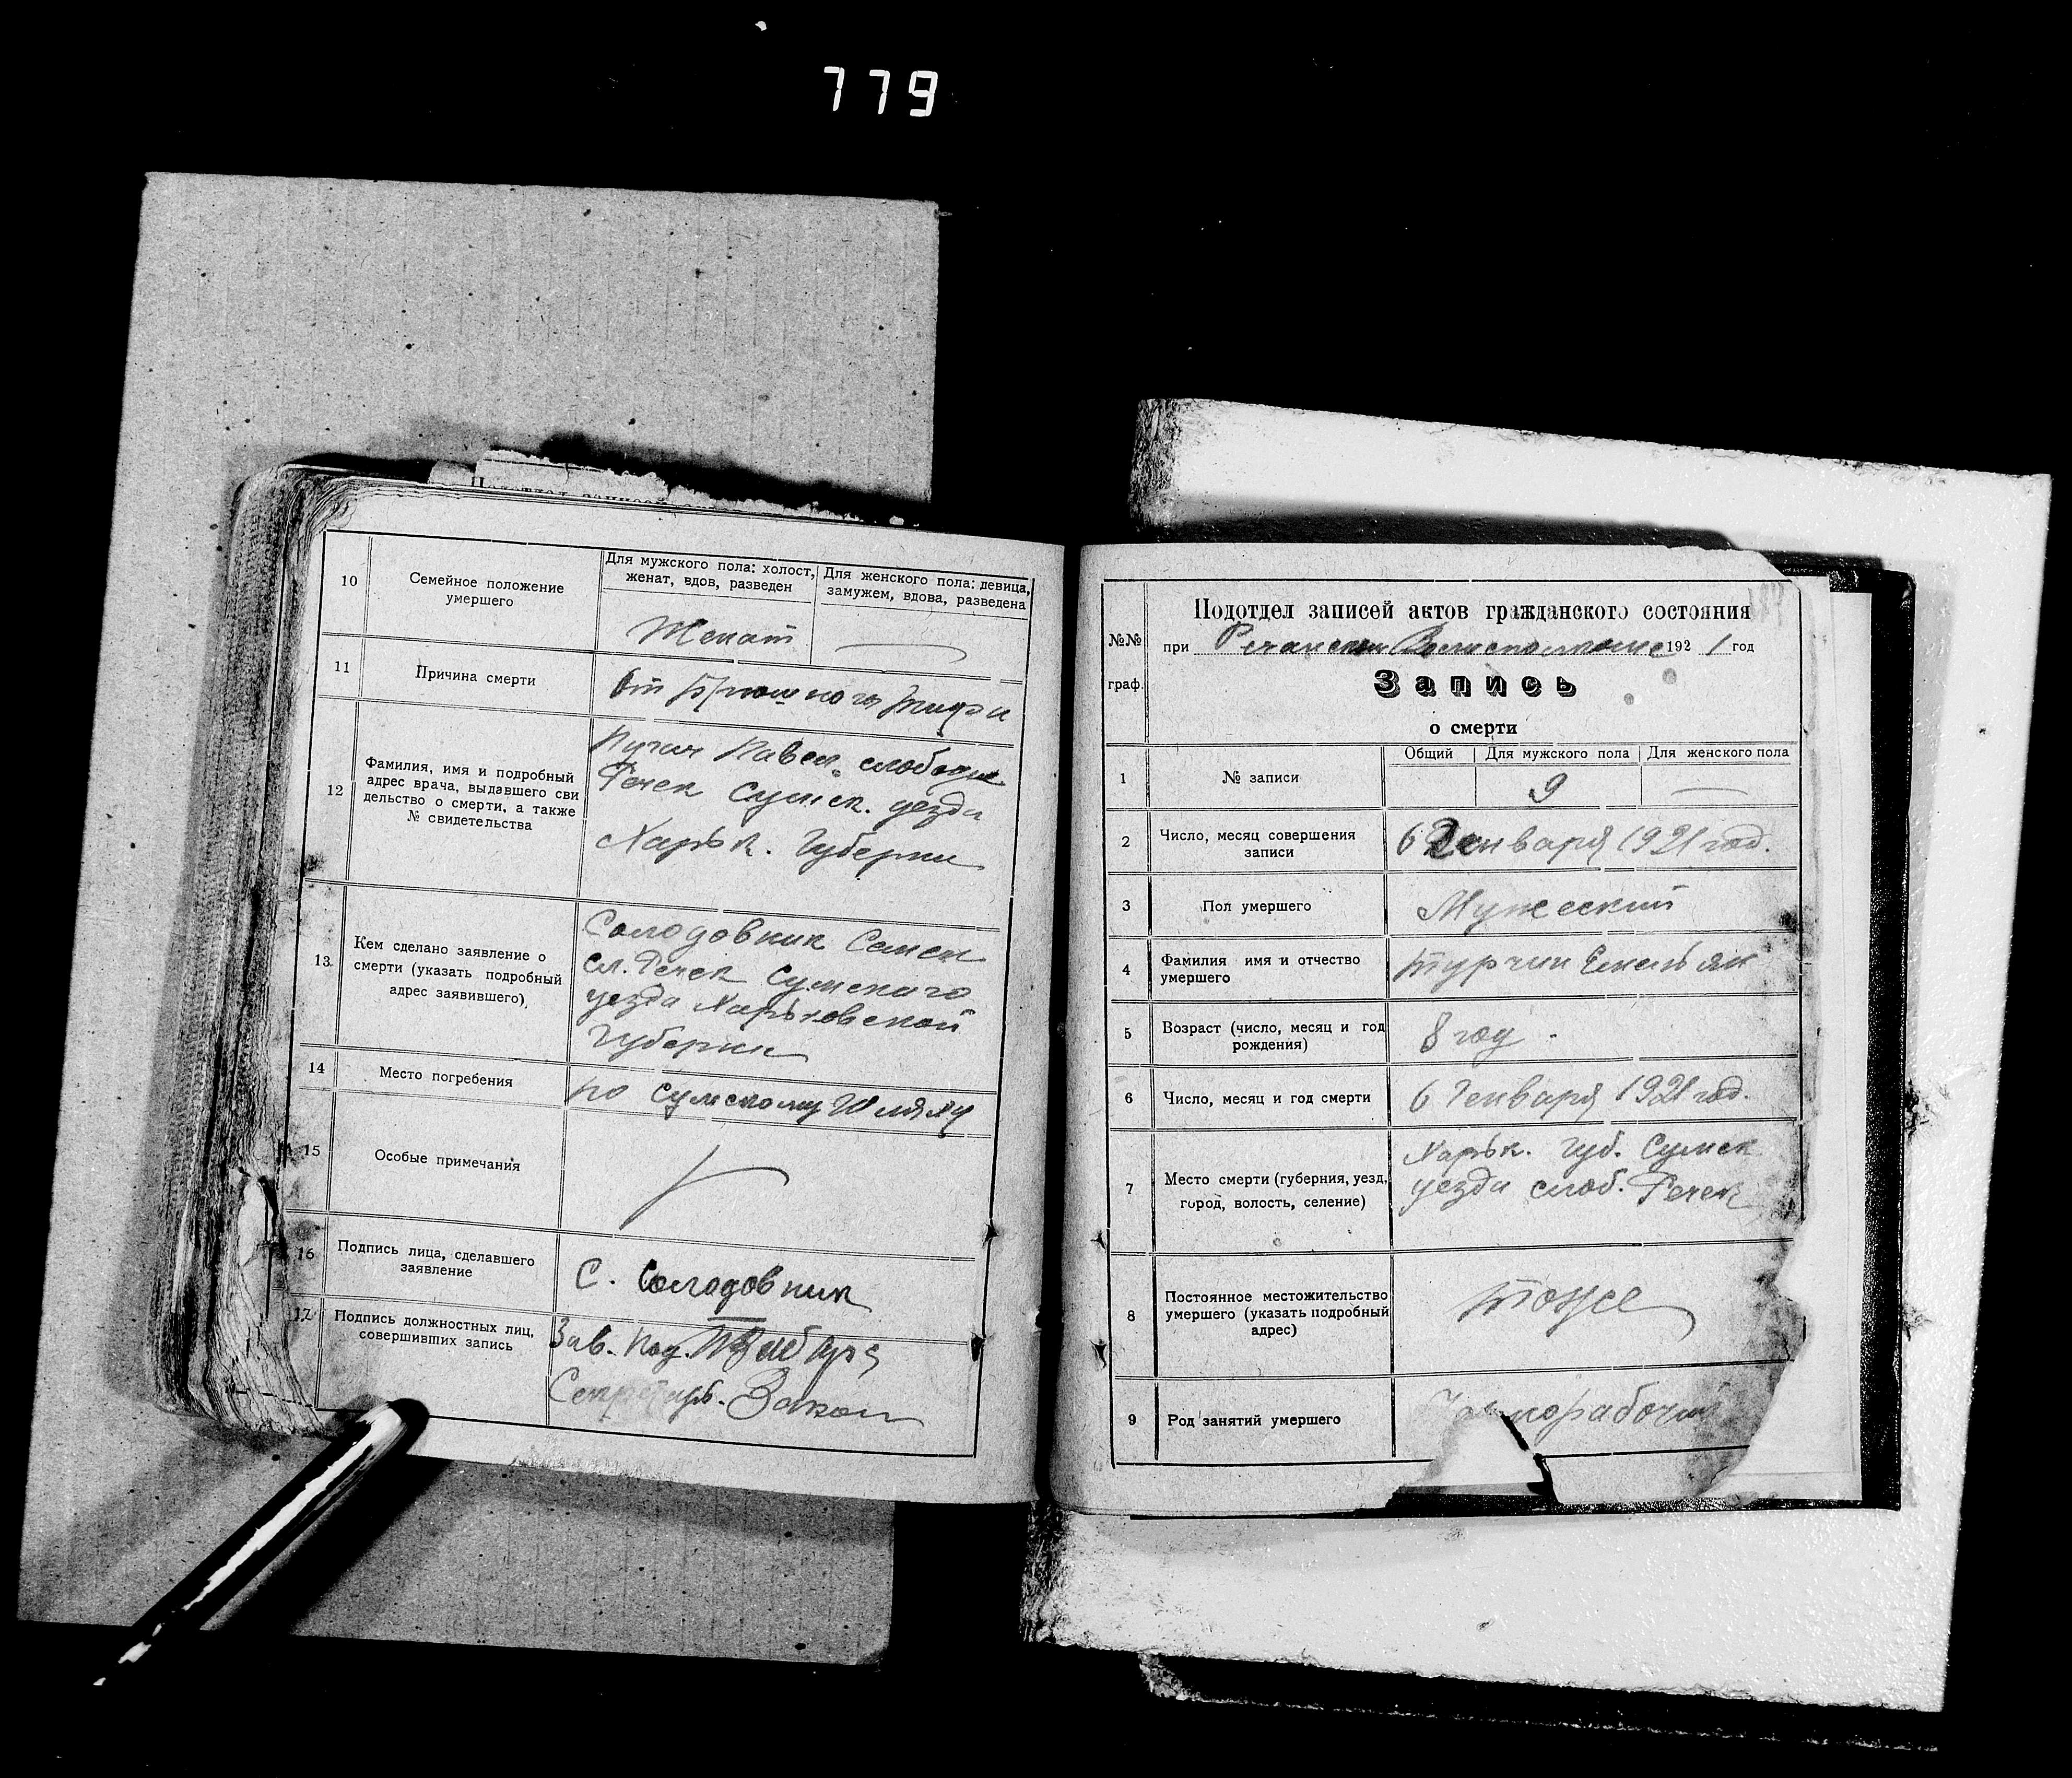 779
10
Семейное положение
умершего
Для мужского пола: холост,
женат, вдов, разведен
Для женского пола: девица,
замужем, вдова, разведена
Женат
11
Причина смерти
От Брюшного тифа
12
Фамилия, имя и подробный
адрес врача, выдавшего сви
дельство о смерти, а также
№ свидетельства
Павел слободы
Речек Сумск. уезда
Харьк. Губернии
13
Кем сделано заявление о
смерти (указать подробный
адрес заявившего),
Солодовник Семен
сл. Речек Сумского
уезда Харьковской
Губернии
14
Место погребения
по Сумскому Шляху
15
Особые примечания
16
Подпись лица, сделавшего
заявление
С. Солодовник
17
Подпись должностных лиц,
совершивших запись
Зав. Под.
Секретарь.
№№
граф.
Подотдел записей актов гражданского состояния
при Речанском Волисполкоме 1921 год
Запись
о смерти
1
№ записи
Общий
Для мужского пола
Для женского пола
9
2
Число, месяц совершения
записи
6 Генваря 1921 год.
3
Пол умершего
Мужеский
4
Фамилия имя и отчество
умершего
Турчин Емельян
5
Возраст (число, месяц и год
рождения)
8 год
6
Число, месяц и год смерти
6 Генваря 1921 год.
7
Место смерти (губерния, уезд,
город, волость, селение)
Харьк. губ. Сумск
уезда слоб. Речек
8
Постоянное местожительство
умершего (указать подробный
адрес)
тоже
9
Род занятий умершего